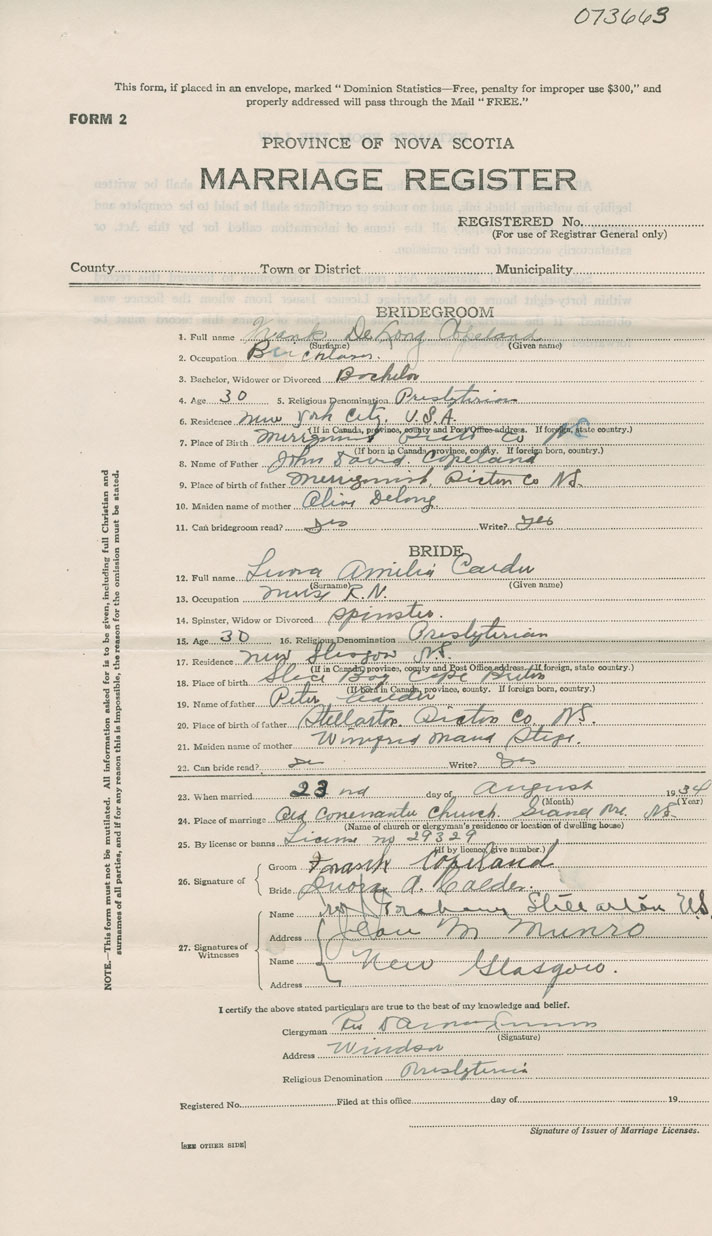 073663
This form, if placed in an envelope, marked "Dominion Statistics—Free, penalty for improper use $300," and
properly addressed will pass through the Mail "FREE."
FORM 2
PROVINCE OF NOVA SCOTIA
MARRIAGE REGISTER
REGISTERED No.
(For use of Registrar General only)
County Town or District Municipality
BRIDEGROOM
1. Full name Frank DeLong Copeland
(Surname) (Given name)
2. Occupation
3. Bachelor, Widower or Divorced Bachelor
4. Age 30 5. Religious Denomination Presbyterian
6. Residence New York City, U.S.A.
(If in Canada, province, county and Post Office address. If foreign, state country.)
7. Place of Birth Merigomish Pictou Co NS
(If born in Canada, province, county. If foreign born, country.)
8. Name of Father John David Copeland
9. Place of birth of father Merigomish, Pictou Co NS.
10. Maiden name of mother Delong
11. Can bridegroom read? Yes Write? Yes
BRIDE
12. Full name Amilia Calder
(Surname) (Given name)
13. Occupation Nurse R.N.
14. Spinster, Widow or Divorced spinster.
15. Age 30 16. Religious Denomination Presbyterian
17. Residence New Glasgow NS.
(If in Canada, province, county and Post Office address. If foreign, state country.)
18. Place of birth Glace Bay Cape Breton
(If born in Canada, province, county. If foreign born, country.)
19. Name of father Peter Calder
20. Place of birth of father Stellarton Pictou Co. NS.
21. Maiden name of mother Winifred Maud
22. Can bride read? Yes Write? Yes
23. When married 23 rd day of August 1934
(Month) (Year)
24. Place of marriage Old Covenanter Church. Grand Pre. NS.
(Name of church or clergyman's residence or location of dwelling house)
25. By license or banns License no 29329
(If by licence, give number.)
26. Signature of Groom Frank Copeland
Bride A. Calder.
27. Signatures of Witnesses
Name Stellarton
Address Jean M Munro
Name New Glasgow.
Address
I certify the above stated particulars are true to the best of my knowledge and belief.
Clergyman Rev
(Signature)
Address Windsor
Religious Denomination Presbyterian
Registered No. Filed at this office day of 19
Signature of Issuer of Marriage Licenses.
[SEE OTHER SIDE]
NOTE.—This form must not be mutilated. All information asked for is to be given, including full Christian and
surnames of all parties, and if for any reason this is impossible, the reason for the omission must be stated.